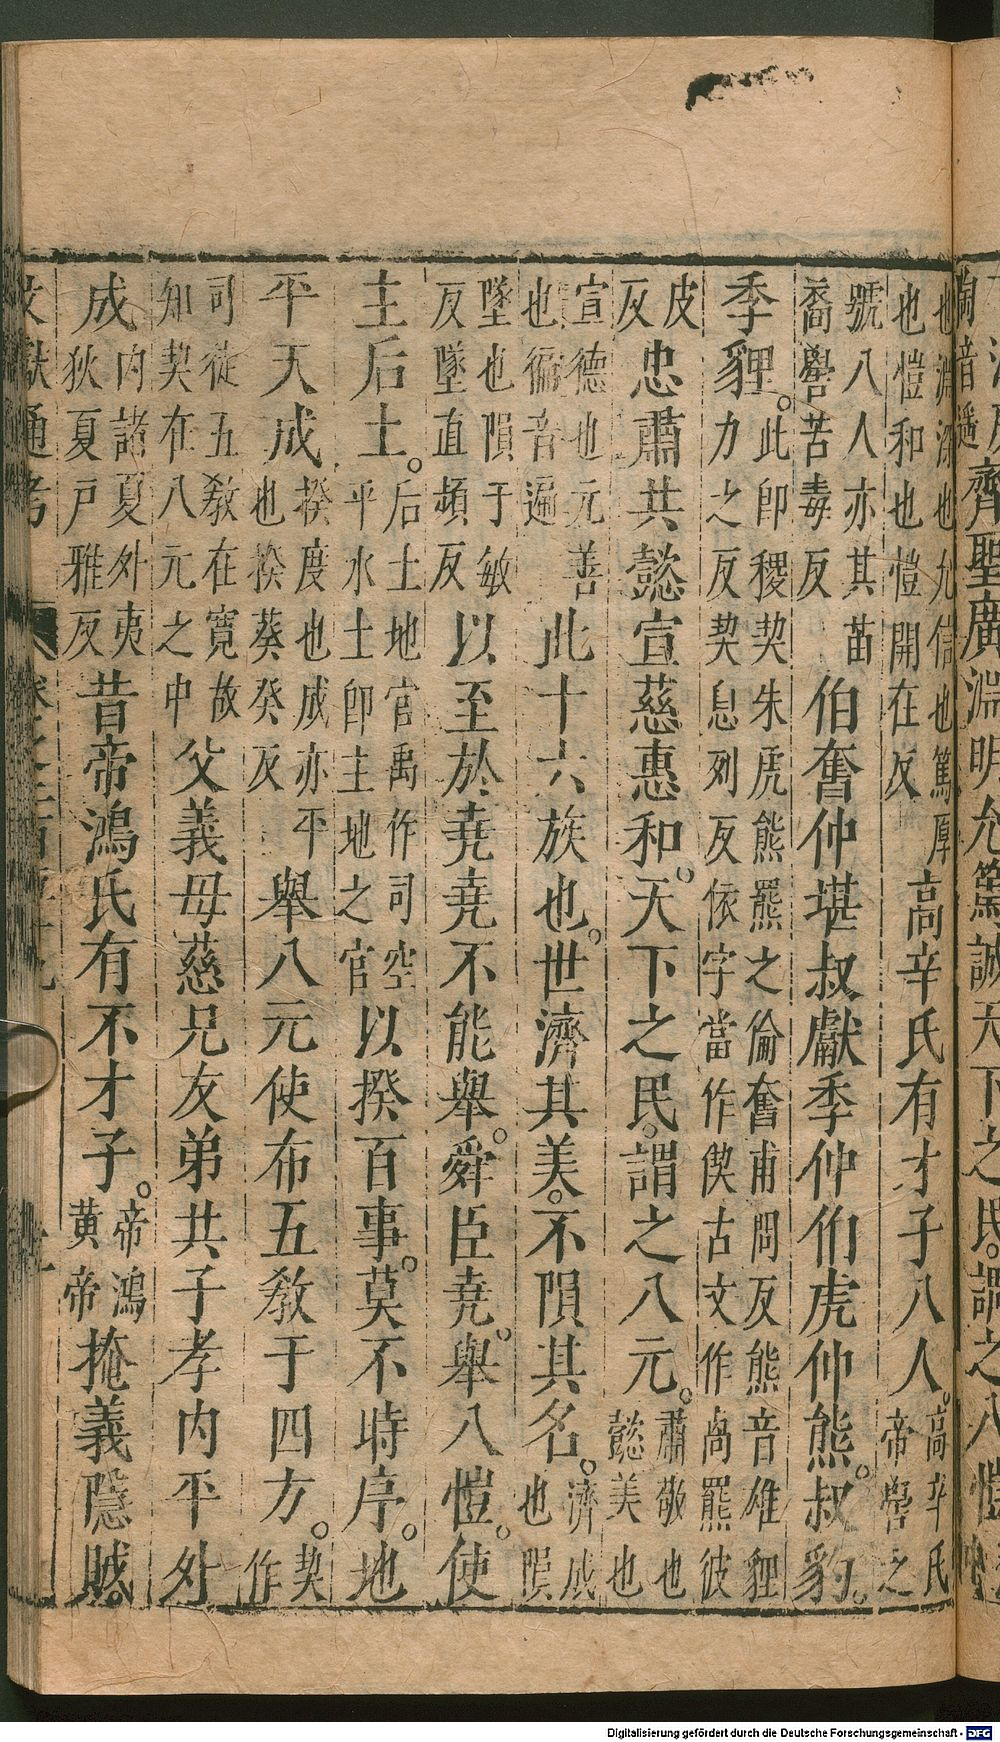 陶音遥齊聖廣淵明允篤誠天下之民。謂之八愷
也淵深也允信也篤厚也愷和也愷開在反高辛氏有才子八人。高辛氏帝嚳之
號八人亦其苗裔嚳苦毒反伯奮仲堪叔獻季仲伯虎仲熊。叔豹。
季貍。此即稷契朱虎熊羆之倫奮甫問反熊音雄貍力之反契息列反依字當作偰古文作卨羆彼
皮反忠肅共懿宣慈惠和。天下之民。謂之八元。肅敬也懿美也
宣德也元善也徧音遍此十六族也。世濟其美。不隕其名。濟成也隕
墜也隕于敏反墜直類反以至於堯堯不能舉。舜臣堯。舉八愷。使
主后土。后土地官禹作司空平水土即主地之官以揆百事。莫不時序。地
平天成揆度也成亦平也揆葵癸反舉八元使布五教于四方。契作
司徒五教在寬故知契在八元之中父義母慈兄友弟共子孝内平外
成内諸夏外夷狄夏戶雅反昔帝鴻氏有不才子。帝鴻黄帝掩義隱賊。
文獻通考
Digitalisierung gefördert durch die Deutsche Forschungsgemeinschaft - DFG